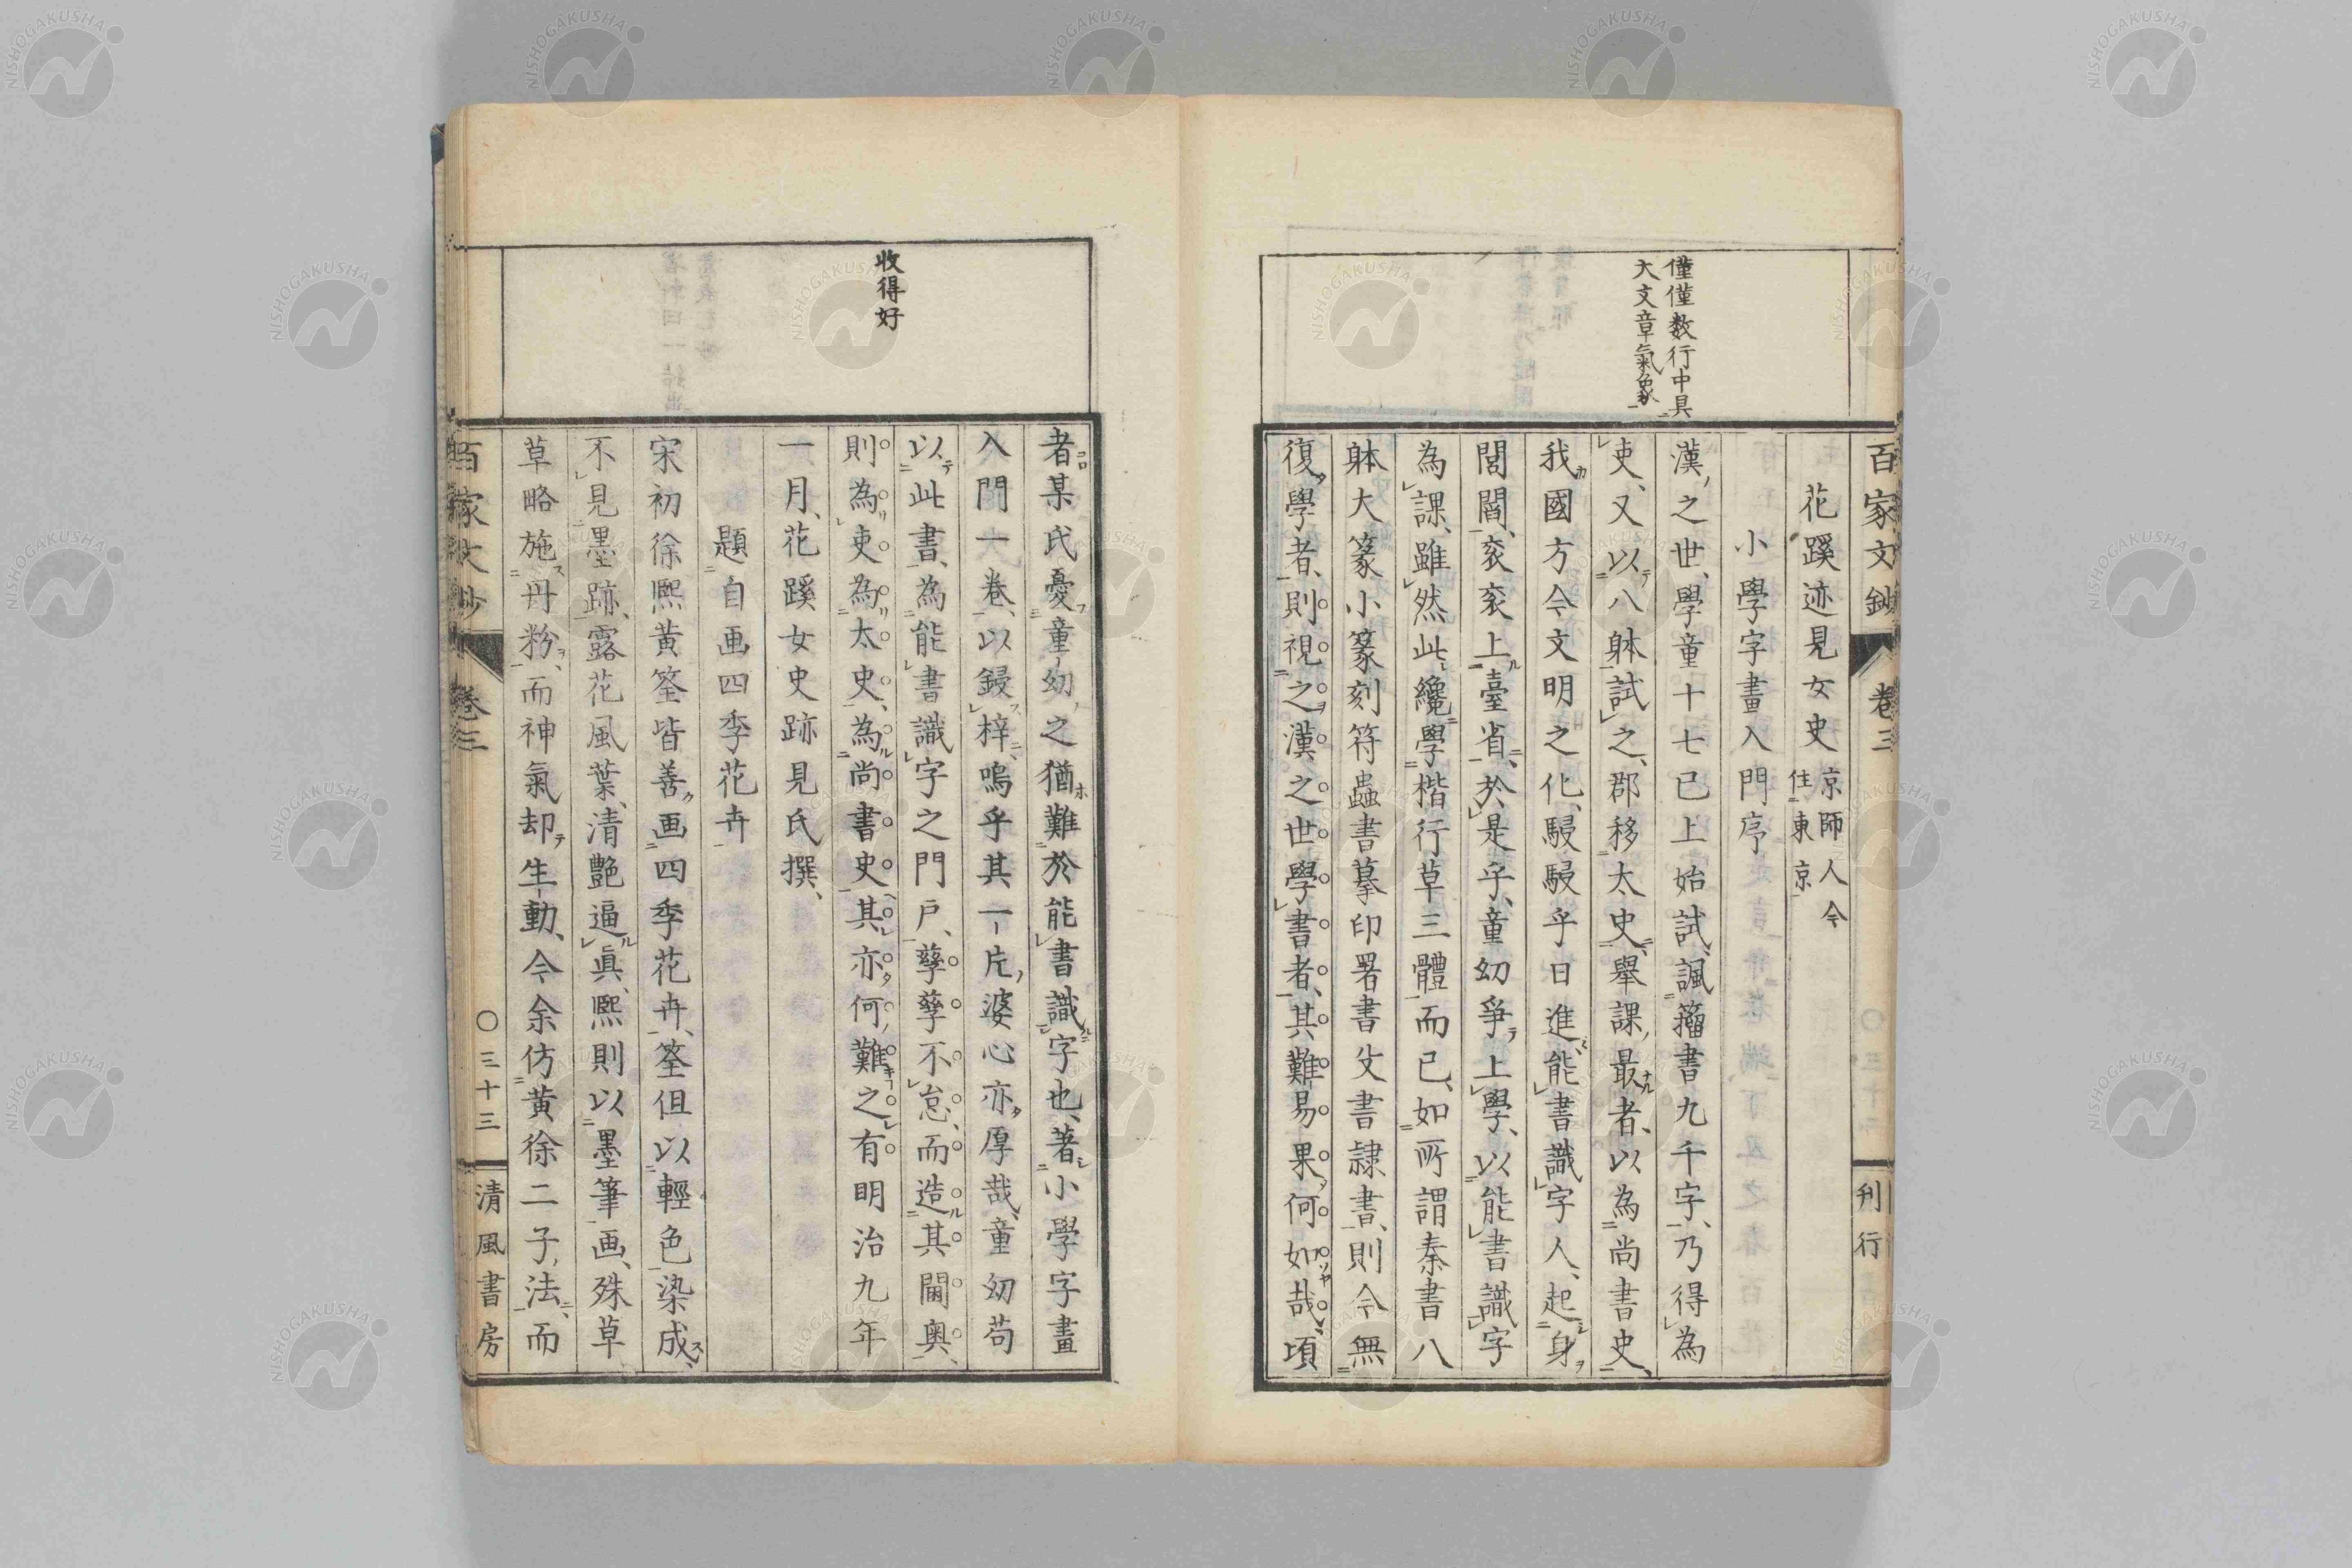 百家文鈔 卷三 刋行
僅僅数行中具
大文章氣象
花蹊迹見女史 京師人今
住東京
小學字畫入門序
漢之世、學童十七已上始試、諷籀書九千字、乃得為
吏、又以八躰試之、郡移太史、舉課最者、以為尚書史、
我國方今文明之化、駸駸乎日進、能書識字人、起身
閭閻、衮衮上臺省、於是乎、童幼爭上學、以能書識字
為課、雖然此纔學楷行草三體而已、如所謂秦書八
躰大篆小篆刻符蟲書摹印署書殳書隷書、則今無
復學者、則視之漢之世學書者、其難易果何如哉、頃
收得好
者某氏憂童幼之猶難於能書識字也、著小學字畫
入門一卷、以鋟梓、嗚乎其一片婆心亦厚哉、童幼苟
以此書、為能書識字之門戸、孳孳不怠、而造其閫奥、
則為吏為太史、為尚書史、其亦何難之有明治九年
一月、花蹊女史跡見氏撰、
題自画四季花卉
宋初徐熙黄筌皆善画四季花卉、筌但以輕色染成、
不見墨跡、露花風葉、清艶逼眞、熙則以墨筆画、殊草
草略施丹粉、而神氣却生動、今余仿黄徐二子法、而
百家文鈔 卷三 〇三十三 清風書房